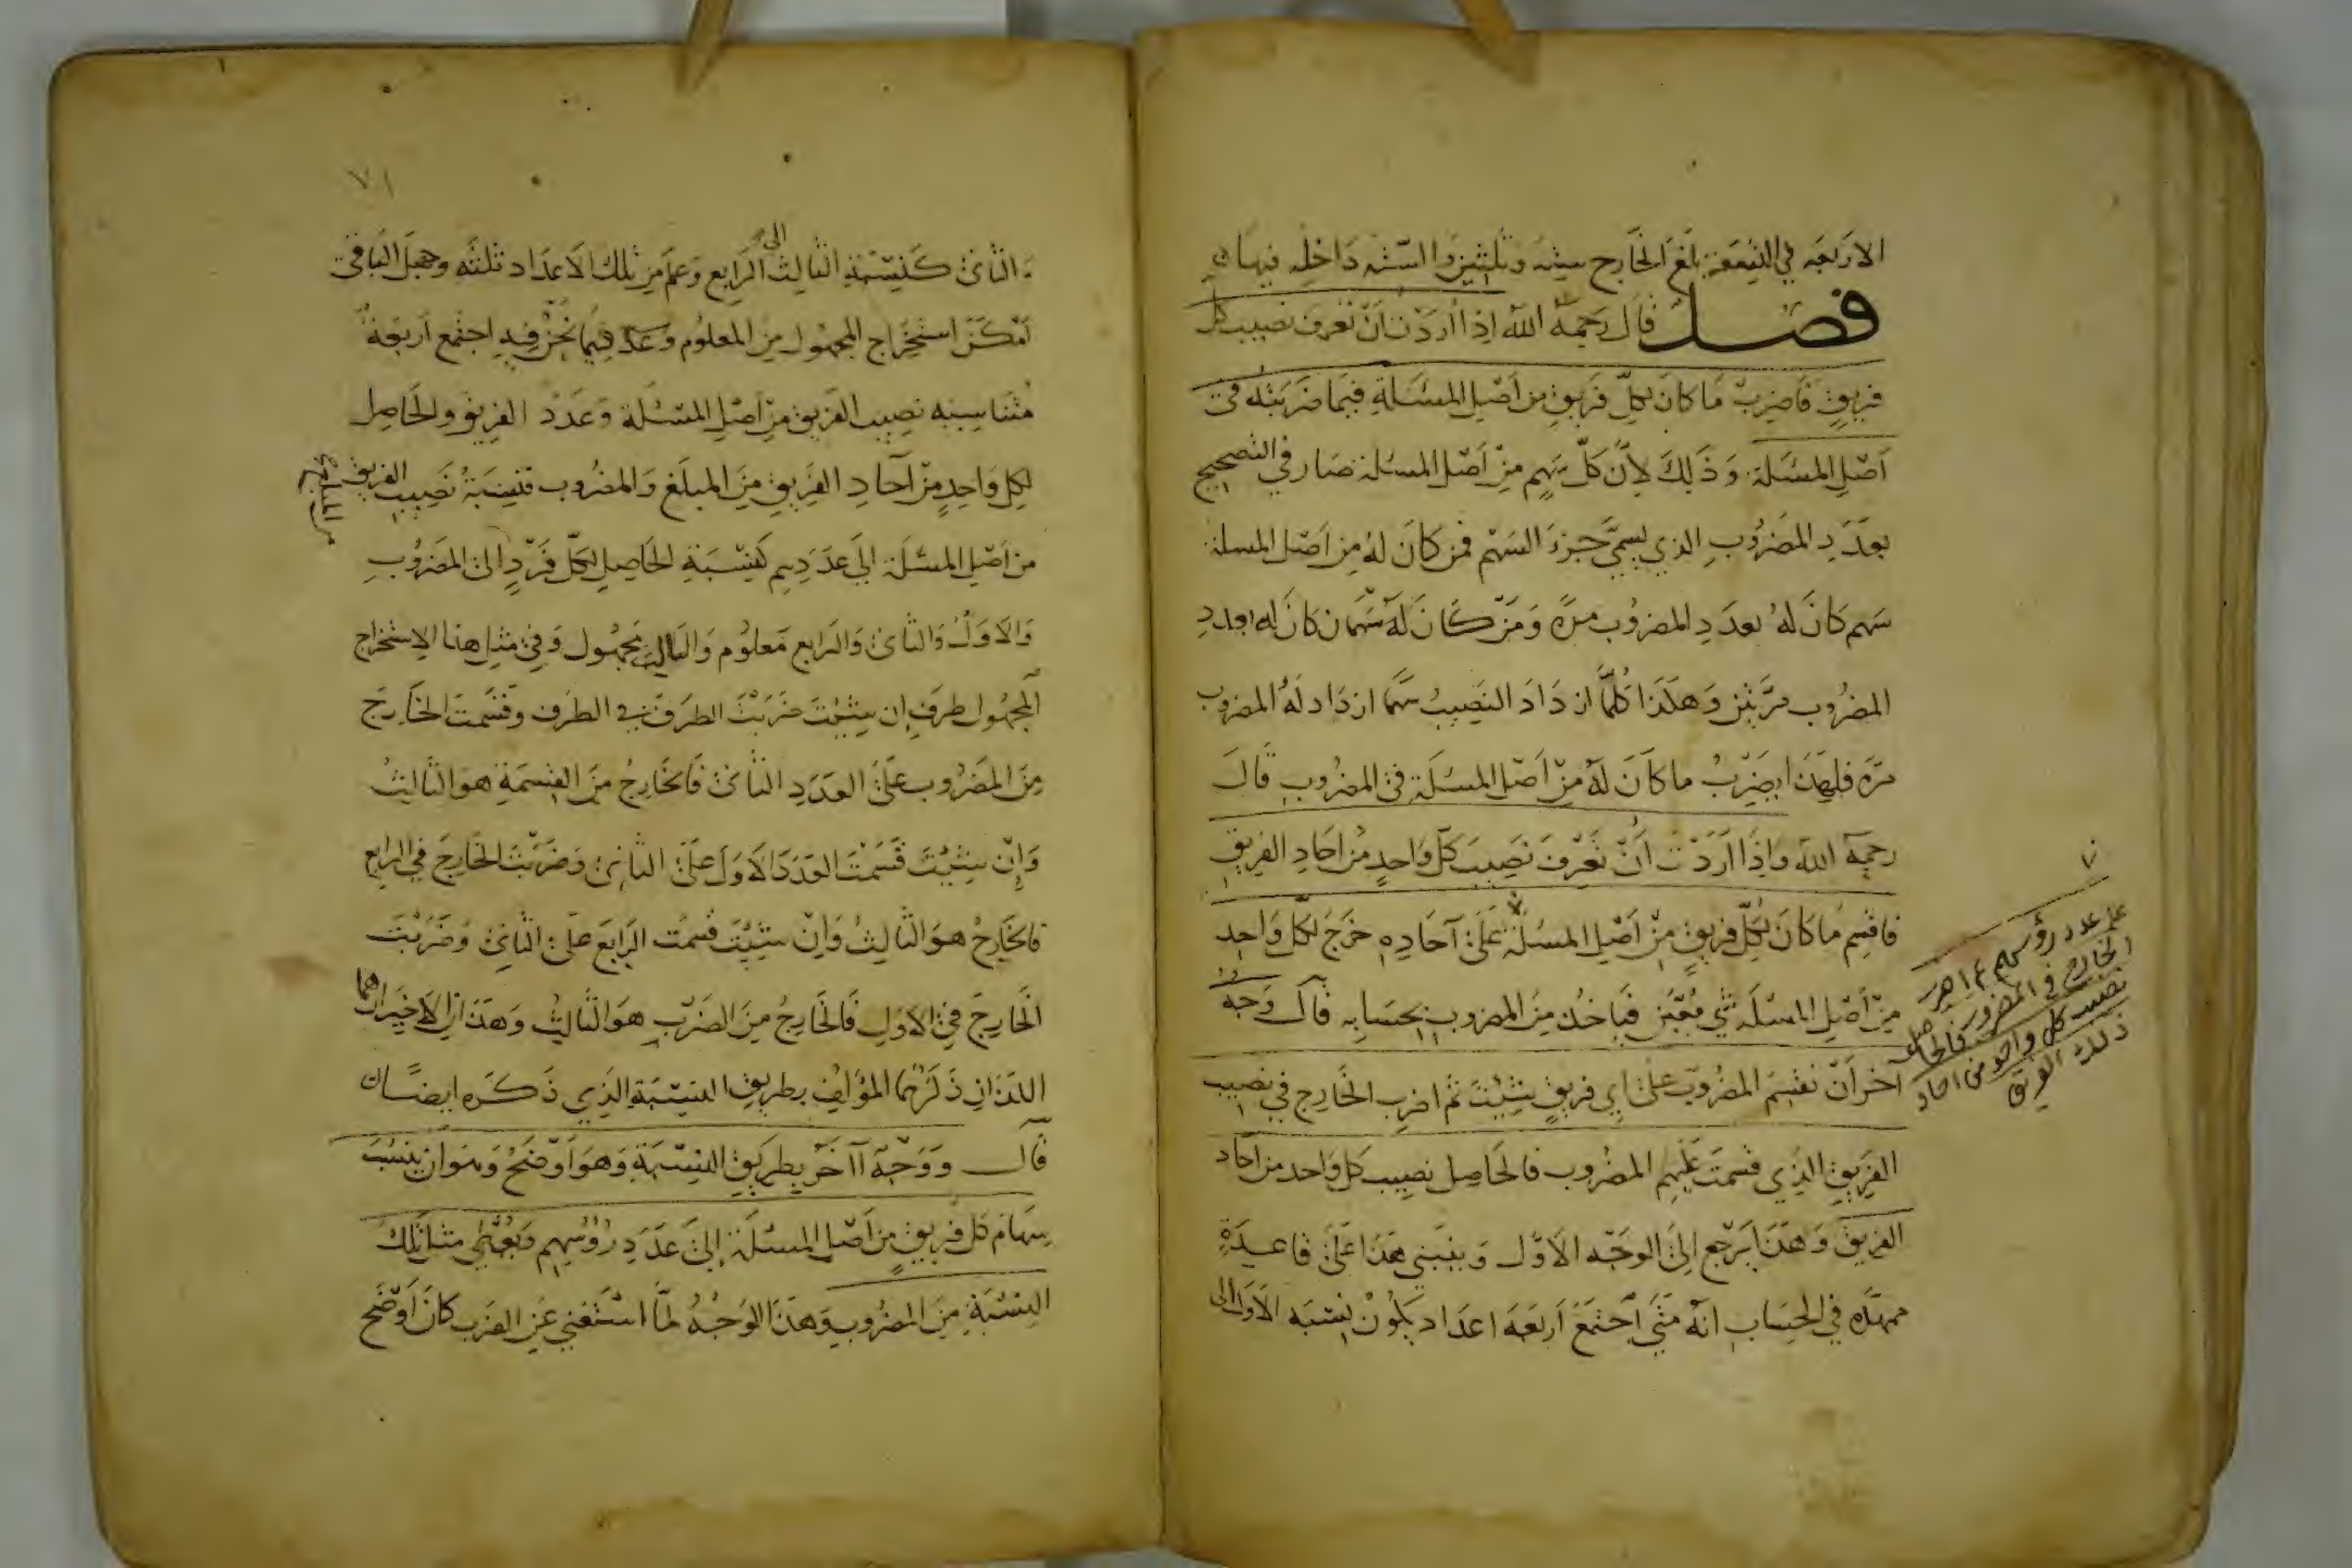 الاربعه في التسعة بلغ الخارج ستة وثلثين والستة داخله فيها
فصل قال رحمه الله اذا اردت ان تعرف نصيب كل
فريق فاضرب ما كان لكل فريق من اصل المسئلة فيما ضربته في
اصل المسئلة وذلك لان كل سهم من اصل المسئلة صار في التصحيح
بعدد المضروب الذي يسمى جزء السهم فمن كان له من اصل المسلة
سهم كان له بعدد المضروب مرة ومن كان له سهمان كان له بعدد
المضروب مرتين وهكذا كلما ازداد النصيب سهما ازداد له المضروب
مرة فلهذا يضرب ما كان له من اصل المسئلة في المضروب قال
رحمه الله واذا اردت ان تعرف نصيب كل واحد من احاد الفريق
فاقسم ما كان لكل فريق من اصل المسئلة على آحاده خرج لكل واحد
من اصل المسئلة شي معين فياخذ من المضروب بحسابه قال ووجه
آخر ان تقسم المضروب على اي فريق شئت ثم اضرب الخارج في نصيب
الفريق الذي قسمت عليهم المضروب فالحاصل نصيب كل واحد من احاد
الفريق وهذا يرجع الى الوجه الاول وينبني هذا على قاعدة
ممهده في الحساب انه متى اجتمع اربعه اعداد يكون نسبه الاول الى
٧٠
على عدد رؤسهم ثم اضرب
الخارج في المضروب فالحاصل
نصيب كل واحد من احاد
ذلك الفريق
٧١
الثاني كنسبة الثالث الى الرابع وعلم من تلك الاعداد ثلثه وجهل الباقي
امكن استخراج المجهول من المعلوم وعند فيما نحن فيه اجتمع اربعة
متناسبه نصيب الفريق من اصل المسئلة وعدد الفريق والحاصل
لكل واحد من آحاد الفريق من المبلغ والمضروب فنسبة نصيب الفريق
من اصل المسئلة الى عددهم كنسبة الحاصل لكل فرد الى المضروب
والاول والثاني والرابع معلوم والثالث مجهول وفي مثل هذا الاستخراج
المجهول طرق ان شئت ضربت الطرف في الطرف وقسمت الخارج
من المضروب على العدد الثاني فالخارج من القسمة هو الثالث
وان شئت قسمت العدد الاول على الثاني وضربت الخارج في الرابع
فالخارج هو الثالث وان شئت قسمت الرابع على الثاني وضربت
الخارج في الاول فالخارج من الضرب هو الثالث وهذان الاخيران هما
اللذان ذكرهما المؤلف بطريق النسبة الذي ذكره ايضا
قال ووجه آخر بطريق النسبة وهو اوضح وهو ان ينسب
سهام كل فريق من اصل المسئلة الى عدد رؤسهم ويعطى مثل تلك
النسبة من المضروب وهذا الوجه لما استغنى عن الضرب كان اوضح